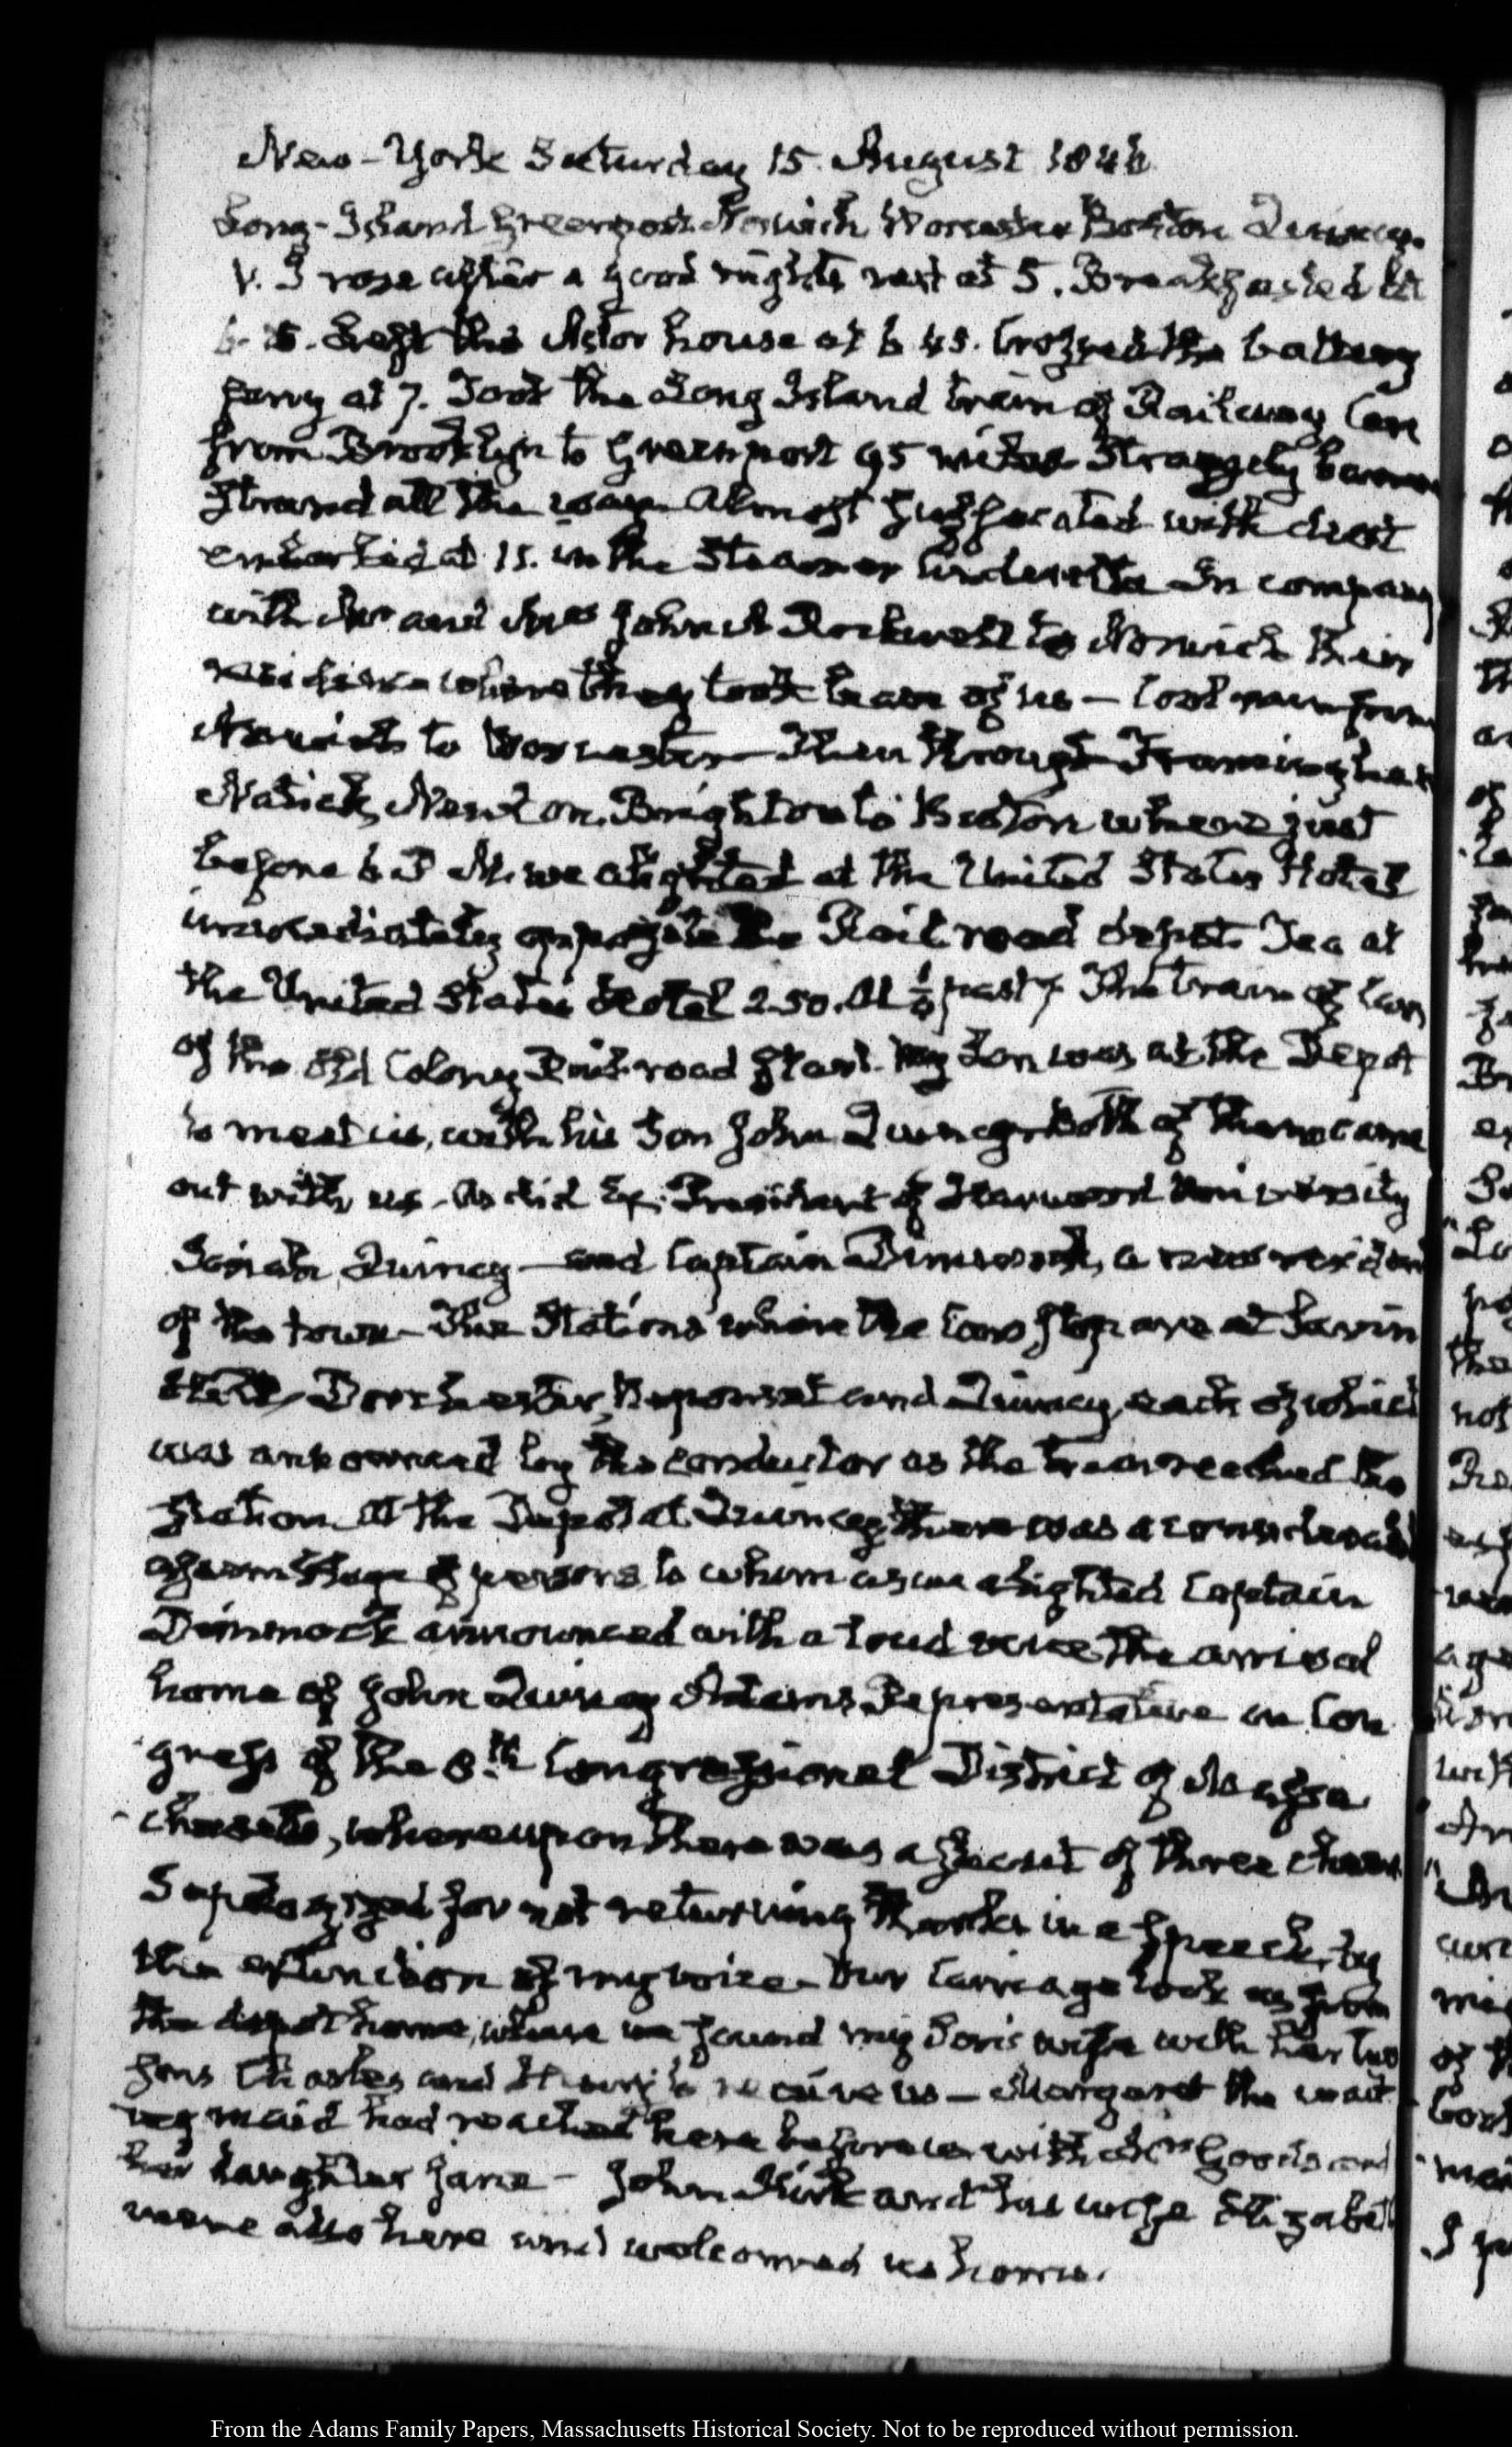 New-York Saturday 15. August 1846
Long-Island Greenport Norwich Worcester Boston Quincy.
V. I rose after a good nights rest at 5. Breakfasted at
6. 15. Left the Astor house at 6 45. Crossed the battery
ferry at 7. Took the Long Island train of Railway Cars
from Brooklyn to Greenport 95 miles Strangely barren
strand all the way. Almost suffocated with dust
embarked at 11. in the Steamer in company
with Mr and Mrs John A Rockwell to Norwich their
residence where they took leave of us — from
Norwich to Worcester — Then through Framingham
Natick, Newton. Brighton to Boston where just
before 6 P M. we alighted at the United States Hotel
immediately opposite the Rail road depot. Tea at
the United States Hotel 2.50. At ½ past 7 The train of Cars
of the Old Colony Rail-road start. My Son was at the Depot
to meet us, with his Son John Quincy. Both of them came
out with us. As did Ex. President of Harvard University
Josiah Quincy — and Captain Dimmock, a new resident
of the town — The Stations where the Cars stop are at Savin
Hill, Dorchester, Neponset and Quincy, each of which
was announced by the conductor as the train reached the
station. At the Depot at Quincy, there was a considerable
assemblage of persons to whom as we alighted Captain
Dimmock announced with a loud voice the arrival
home of John Quincy Adams Representative in Con
gress of the 8.th Congressional District of Massa
chusetts, whereupon there was a shout of three cheers
I apologized for not returning thanks in a speech, by
the extinction of my voice — Our Carriage took us from
the depot home, where we found my Son's wife with her two
sons Charles and Henry to receive us — Margaret the wait
ing maid had reached here before us with Mrs and
her daughter Jane — John Kirk and his wife Elizabeth
were also here and welcomed us home.
From the Adams Family Papers, Massachusetts Historical Society. Not to be reproduced without permission.